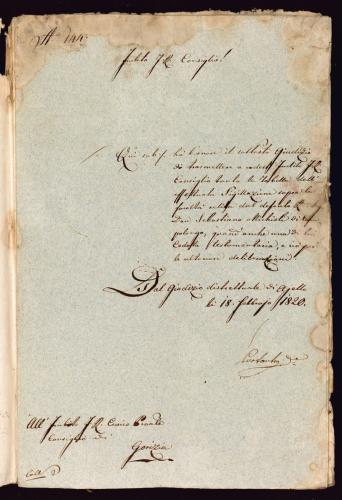 144
Inclito I. R. Consiglio!
Qui sub /. ha l'onore il sottosto Giudizio
di trasmettere a codesto Inclito I. R.
Consiglio tanto la Tabella dell'
effettuata Sigillazione sopra la
facoltà del defunto
Don Sebastiano di
quanto anche una di lui
Cedola Testamentaria, e ciò per
le ulteriori deliberazioni
Dal Giudizio distrettuale di Ajello
li 18. febbrajo 1820.
All' Inclito I. R. Civico Provle
Consiglio di
Gorizia